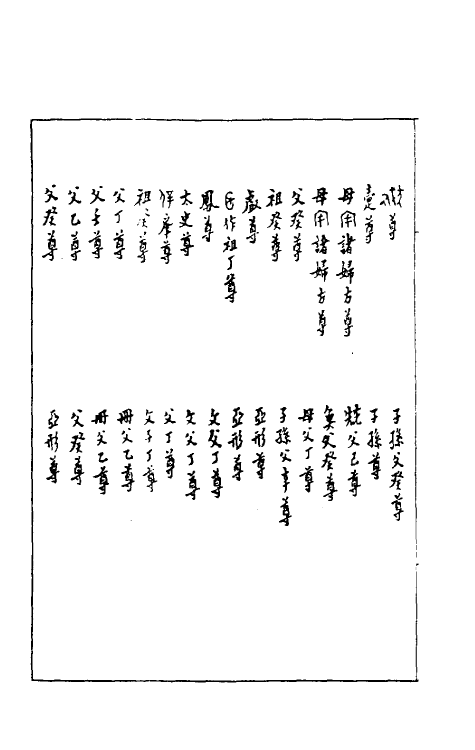 尊
壴尊
母用諸婦方尊
母用諸婦方尊
父癸尊
祖癸尊
尊
作祖丁尊
鳳尊
太史尊
尊
祖癸尊
父丁尊
父辛尊
父乙尊
父癸尊
子孫父癸尊
子孫尊
父己尊
父癸尊
母父丁尊
子孫父辛尊
亞形尊
亞形尊
父丁尊
父丁尊
父丁尊
子丁尊
冊父乙尊
冊父乙尊
父癸尊
亞形尊